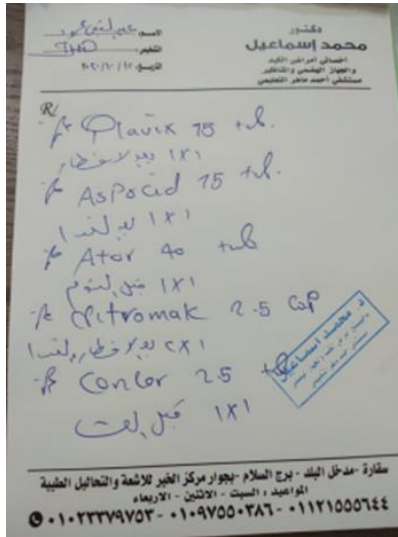 دكتور
محمد إسماعيل
أخصائي أمراض الكبد
والجهاز الهضمي والمناظير
مستشفى أحمد ماهر التعليمي
الاسم:
التشخيص: IHD
التاريخ:
R/
Plavix 75 tab.
1x1 بعد الافطار
Aspocid 75 tab.
1x1 بعد الغدا
Ator 40 tab
1x1 قبل النوم
Nitromak 2.5 Cap
2x1 بعد الافطار والغدا
Concor 2.5 tab
1x1 قبل
د. محمد اسماعيل
سقارة -مدخل البلد - برج السلام -بجوار مركز الخبر للأشعة والتحاليل الطبية
المواعيد : السبت - الاثنين - الاربعاء
٠١٠٢٢٣٧٩٧٥٣ - ٠١٠٩٧٥٥٠٣٨٦ - ٠١١٢١٥٥٥٦٤٤